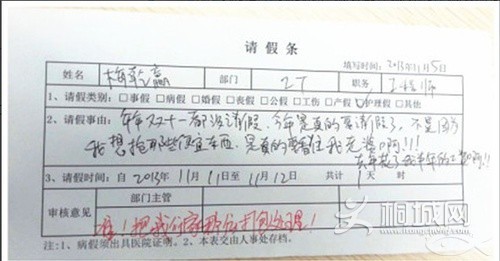 请假条
填写时间:2013年11月5日
姓名 梅乾赢 部门 IT 职务 工程师
1、请假类别:□事假 □病假 □婚假 □丧假 □公假 □工伤 □产假 □护理假 □其他
2、请假事由:年年双十一都没请假,今年是真的要请假了,不是因为
我想抢那些便宜东西,是真的要看住我老婆啊!!!
去年花了我半年的工资啊!!
3、请假时间:自 2013年 11月 11日至 11月 12日 共计 1 天 时
审核意见 部门主管
准!把我们家那位打包处理!
注:1、病假须出具医院证明。2、本表交由人事处存档。
桐城网